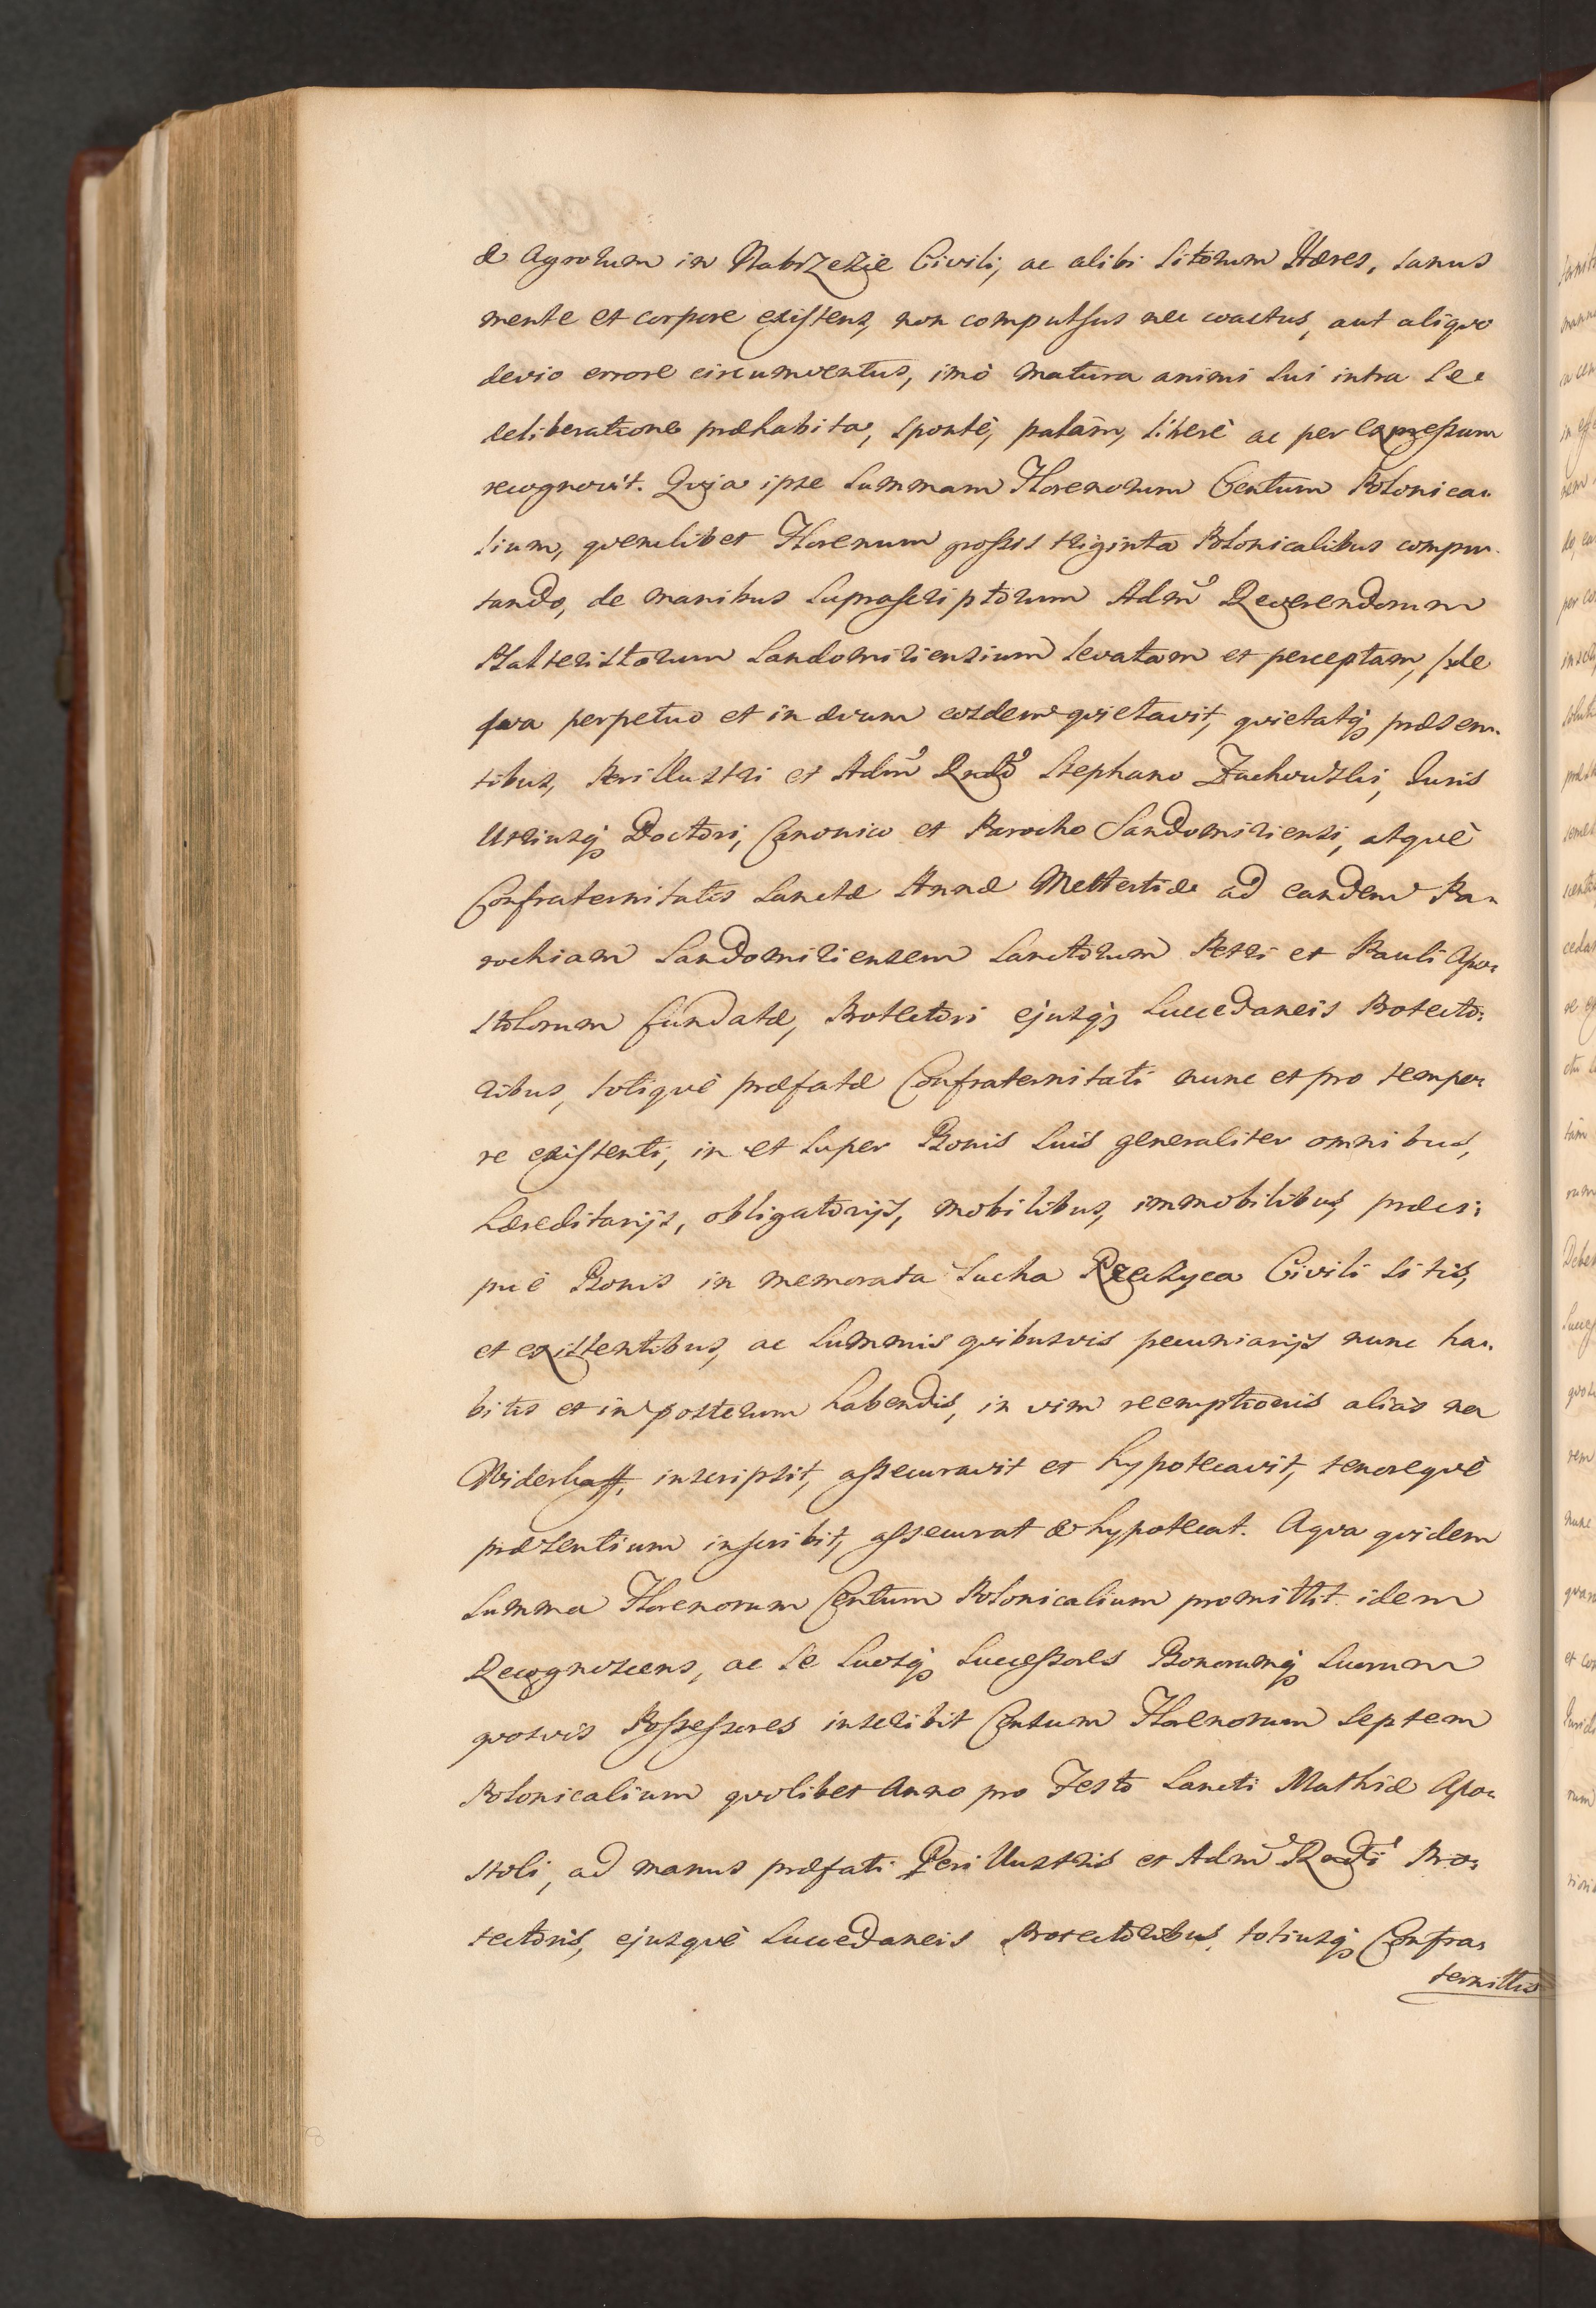 & Agrorum in Nabrzezie Civili, ac alibi Sitorum Hæres, Sanus
mente et corpore existens, non compulsus nec coactus, aut aliquo
devio errore circumventus, imò matura animi Sui intra Se
deliberatione præhabita, Spontè, palàm, liberè ac per expressum
recognovit. Qvia ipse Summam Florenorum Centum Polonica-
lium, qvemlibet Florenum grossis triginta Polonicalibus compu-
tando, de manibus Suprascriptorum Adm̃ Reverendorum
Psalteristarum Sandomiriensium levatam et perceptam, /:de
qva perpetuo et in ævum eosdem qvietavit, qvietatq́; præsen-
tibus, Perillustri et Adm̃ Rndo Stephano Żuchowski, Juris
Utriusq́; Doctori, Canonico et Parocho Sandomiriensi, atqvè
Confraternitatis Sanctæ Annæ Mettertiæ ad eandem Pa-
rochiam Sandomiriensem Sanctorum Petri et Pauli Apo-
stolorum fundatæ, Protectori ejusq́; Succedaneis Protecto-
ribus, totiqvè præfatæ Confraternitati nunc et pro tempo-
re existenti, in et Super Bonis Suis generaliter omnibus,
hæreditarijs, obligatorijs, mobilibus, immobilibus, præci-
puè Bonis in memorata Sucha Rzeczyca Civili Sitis,
et existentibus, ac Summis qvibusvis pecuniarijs nunc ha-
bitis et in posterum habendis, in vim reemptionis alias na
Widerkaff, inscripsit, assecuravit et hypotecavit, tenoreqvè
præsentium inscribit, assecurat & hypotecat. A qva qvidem
Summa Florenorum Centum Polonicalium promittit idem
Recognoscens, ac Se Suosq́; Successores Bonorumq́; Suorum
qvosvis Possessores inscribit Censum Florenorum Septem
Polonicalium qvolibet Anno pro Festo Sancti Mathiæ Apo-
stoli, ad manus præfati Perillustris et Adm̃ Rndi Pro-
tectoris, ejusqvè Succedaneis Protectoribus, totiusq́; Confra-
ternittis